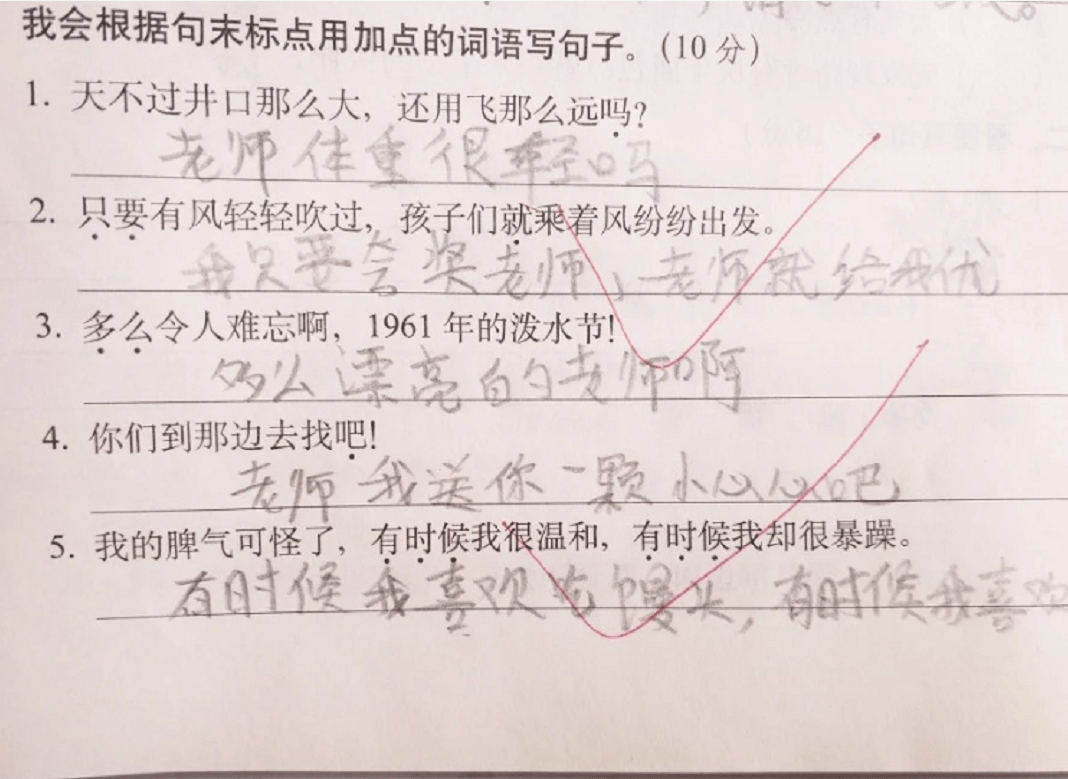 我会根据句末标点用加点的词语写句子。(10 分)
1. 天不过井口那么大，还用飞那么远吗?
老师体重很轻吗
2. 只要有风轻轻吹过，孩子们就乘着风纷纷出发。
我只要会奖老师，老师就给我优
3. 多么令人难忘啊，1961 年的泼水节!
多么漂亮的老师啊
4. 你们到那边去找吧!
老师我送你一颗小心心吧
5. 我的脾气可怪了，有时候我很温和，有时候我却很暴躁。
有时候我喜欢吃馒头，有时候我喜欢